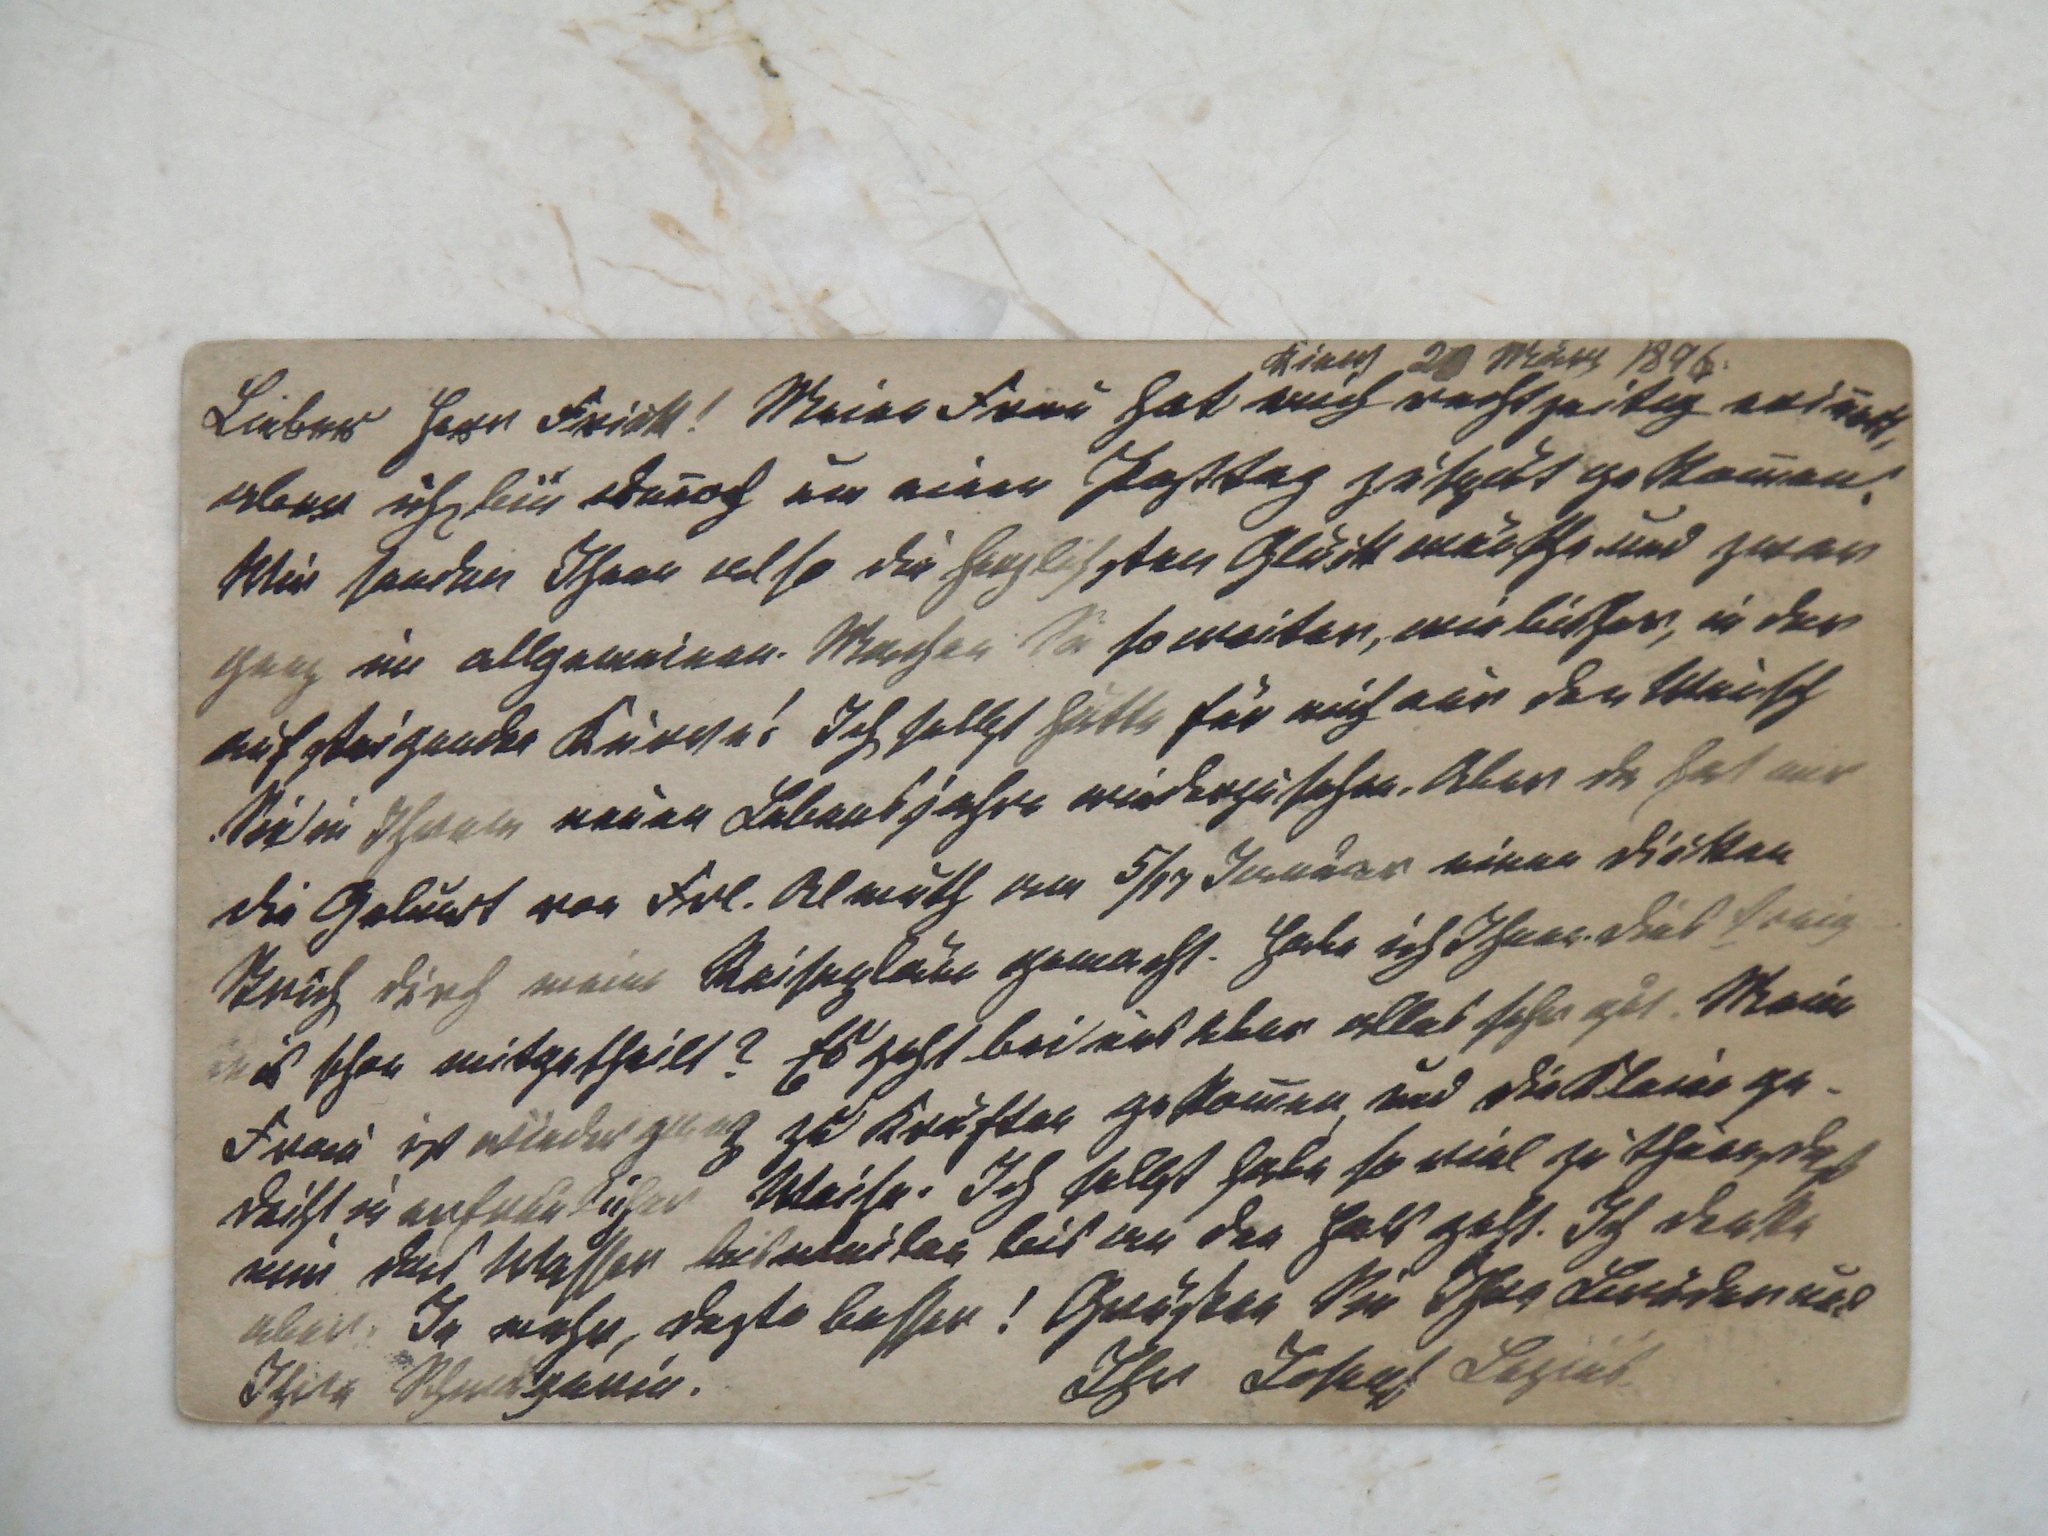 Kiew 20 März 1896.
Lieber Herr Frick! Meine Frau hat mich rechtzeitig erinnert,
aber ich bin dennoch um einen Posttag zu spät gekommen.
Wir senden Ihnen also die herzlichsten Glückwünsche und zwar
ganz im allgemeinen. Machen Sie so weiter, wie bisher, in der
aufsteigenden Kurve! Ich selbst hätte für mich nur den Wunsch
Sie in Ihrem neuen Lebensjahre wiederzusehen. Aber da hat mir
die Geburt von Frl. Almuth am 5/17 Januar einen dicken
Strich durch meine Reisepläne gemacht. Habe ich Ihnen dies Ereig
nis schon mitgetheilt? Es geht bei uns aber alles sehr gut. Meine
Frau ist wieder ganz zu Kräften gekommen, und die Kleine ge-
deiht in erfreulicher Weise. Ich selbst habe so viel zu thun, daß
mir das Wasser bisweilen bis an den Hals geht. Ich denke
aber: Je mehr, desto besser! Grüßen Sie Ihren Bruder und
Ihre Schwägerin. Ihr Joseph Lezius